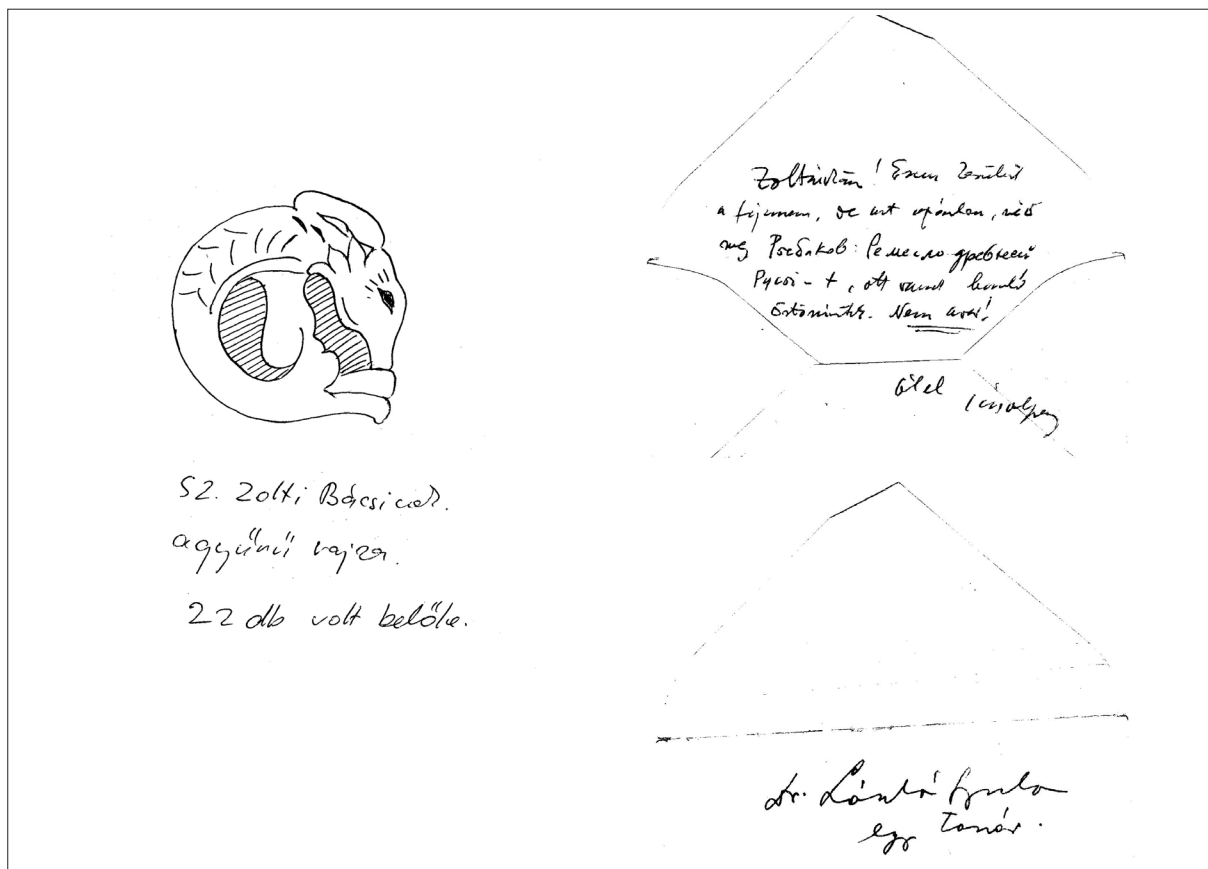 SZ. Zolti Bácsinak.
a gyűrű rajza.
22 db volt belőle.
Zoltánkám!
a de azt ajánlom, nézd
meg Рыбаков: Ремесло древней
Руси-t, ott vannak hasonló
öntőminták. Nem avar!
ölel
Dr. László Gyula
egy tanár.